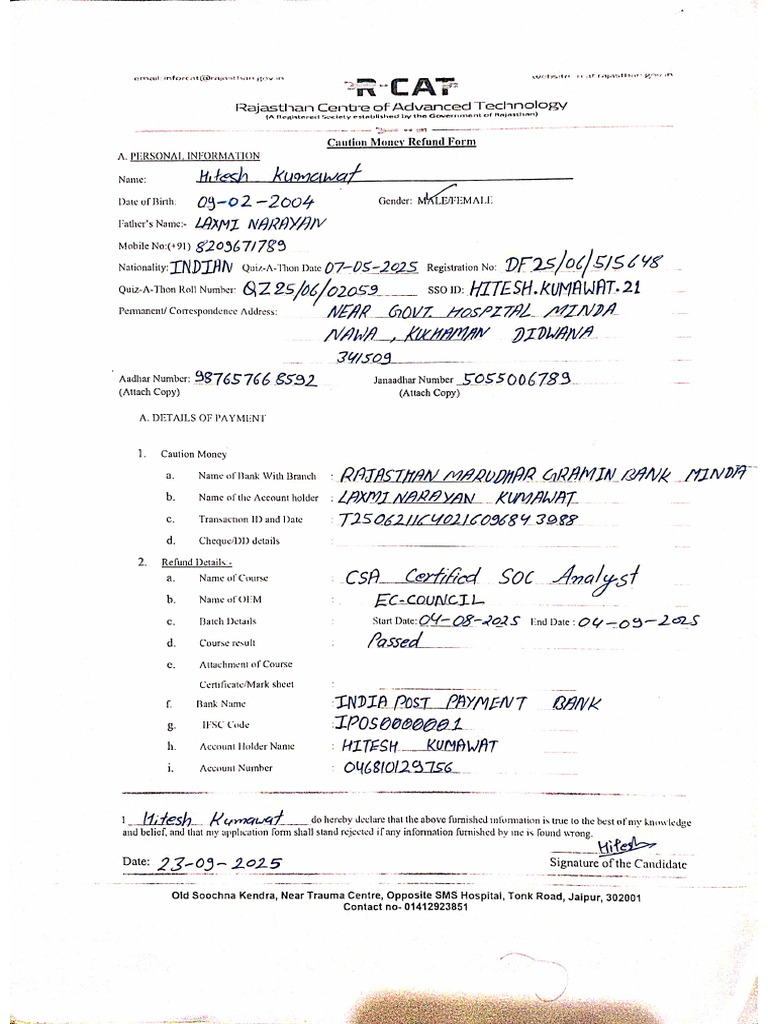 email: inforcat@rajasthan.gov.in
website: rcat.rajasthan.gov.in
R-CAT
Rajasthan Centre of Advanced Technology
(A Registered Society established by the Government of Rajasthan)
Caution Money Refund Form
A. PERSONAL INFORMATION
Name: Hitesh Kumawat
Date of Birth: 09-02-2004 Gender: MALE/FEMALE
Father's Name:- LAXMI NARAYAN
Mobile No:(+91) 8209671789
Nationality: INDIAN Quiz-A-Thon Date 07-05-2025 Registration No: DF25/06/515648
Quiz-A-Thon Roll Number: QZ25/06/02059 SSO ID: HITESH.KUMAWAT.21
Permanent/ Correspondence Address: NEAR GOVT HOSPITAL MINDA
NAWA, KUCHAMAN DIDWANA
341509
Aadhar Number: 987657668592 Janaadhar Number 5055006789
(Attach Copy) (Attach Copy)
A. DETAILS OF PAYMENT
1. Caution Money
a. Name of Bank With Branch : RAJASTHAN MARUDHAR GRAMIN BANK MINDA
b. Name of the Account holder : LAXMI NARAYAN KUMAWAT
c. Transaction ID and Date : T2506211640216096843988
d. Cheque/DD details :
2. Refund Details -
a. Name of Course : CSA Certified SOC Analyst
b. Name of OEM : EC-COUNCIL
c. Batch Details : Start Date: 04-08-2025 End Date : 04-09-2025
d. Course result : Passed
e. Attachment of Course
Certificate/Mark sheet :
f. Bank Name : INDIA POST PAYMENT BANK
g. IFSC Code : IPOS0000001
h. Account Holder Name : HITESH KUMAWAT
i. Account Number : 046810129756
I Hitesh Kumawat do hereby declare that the above furnished information is true to the best of my knowledge
and belief, and that my application form shall stand rejected if any information furnished by me is found wrong.
Hitesh
Date: 23-09-2025 Signature of the Candidate
Old Soochna Kendra, Near Trauma Centre, Opposite SMS Hospital, Tonk Road, Jaipur, 302001
Contact no- 01412923851